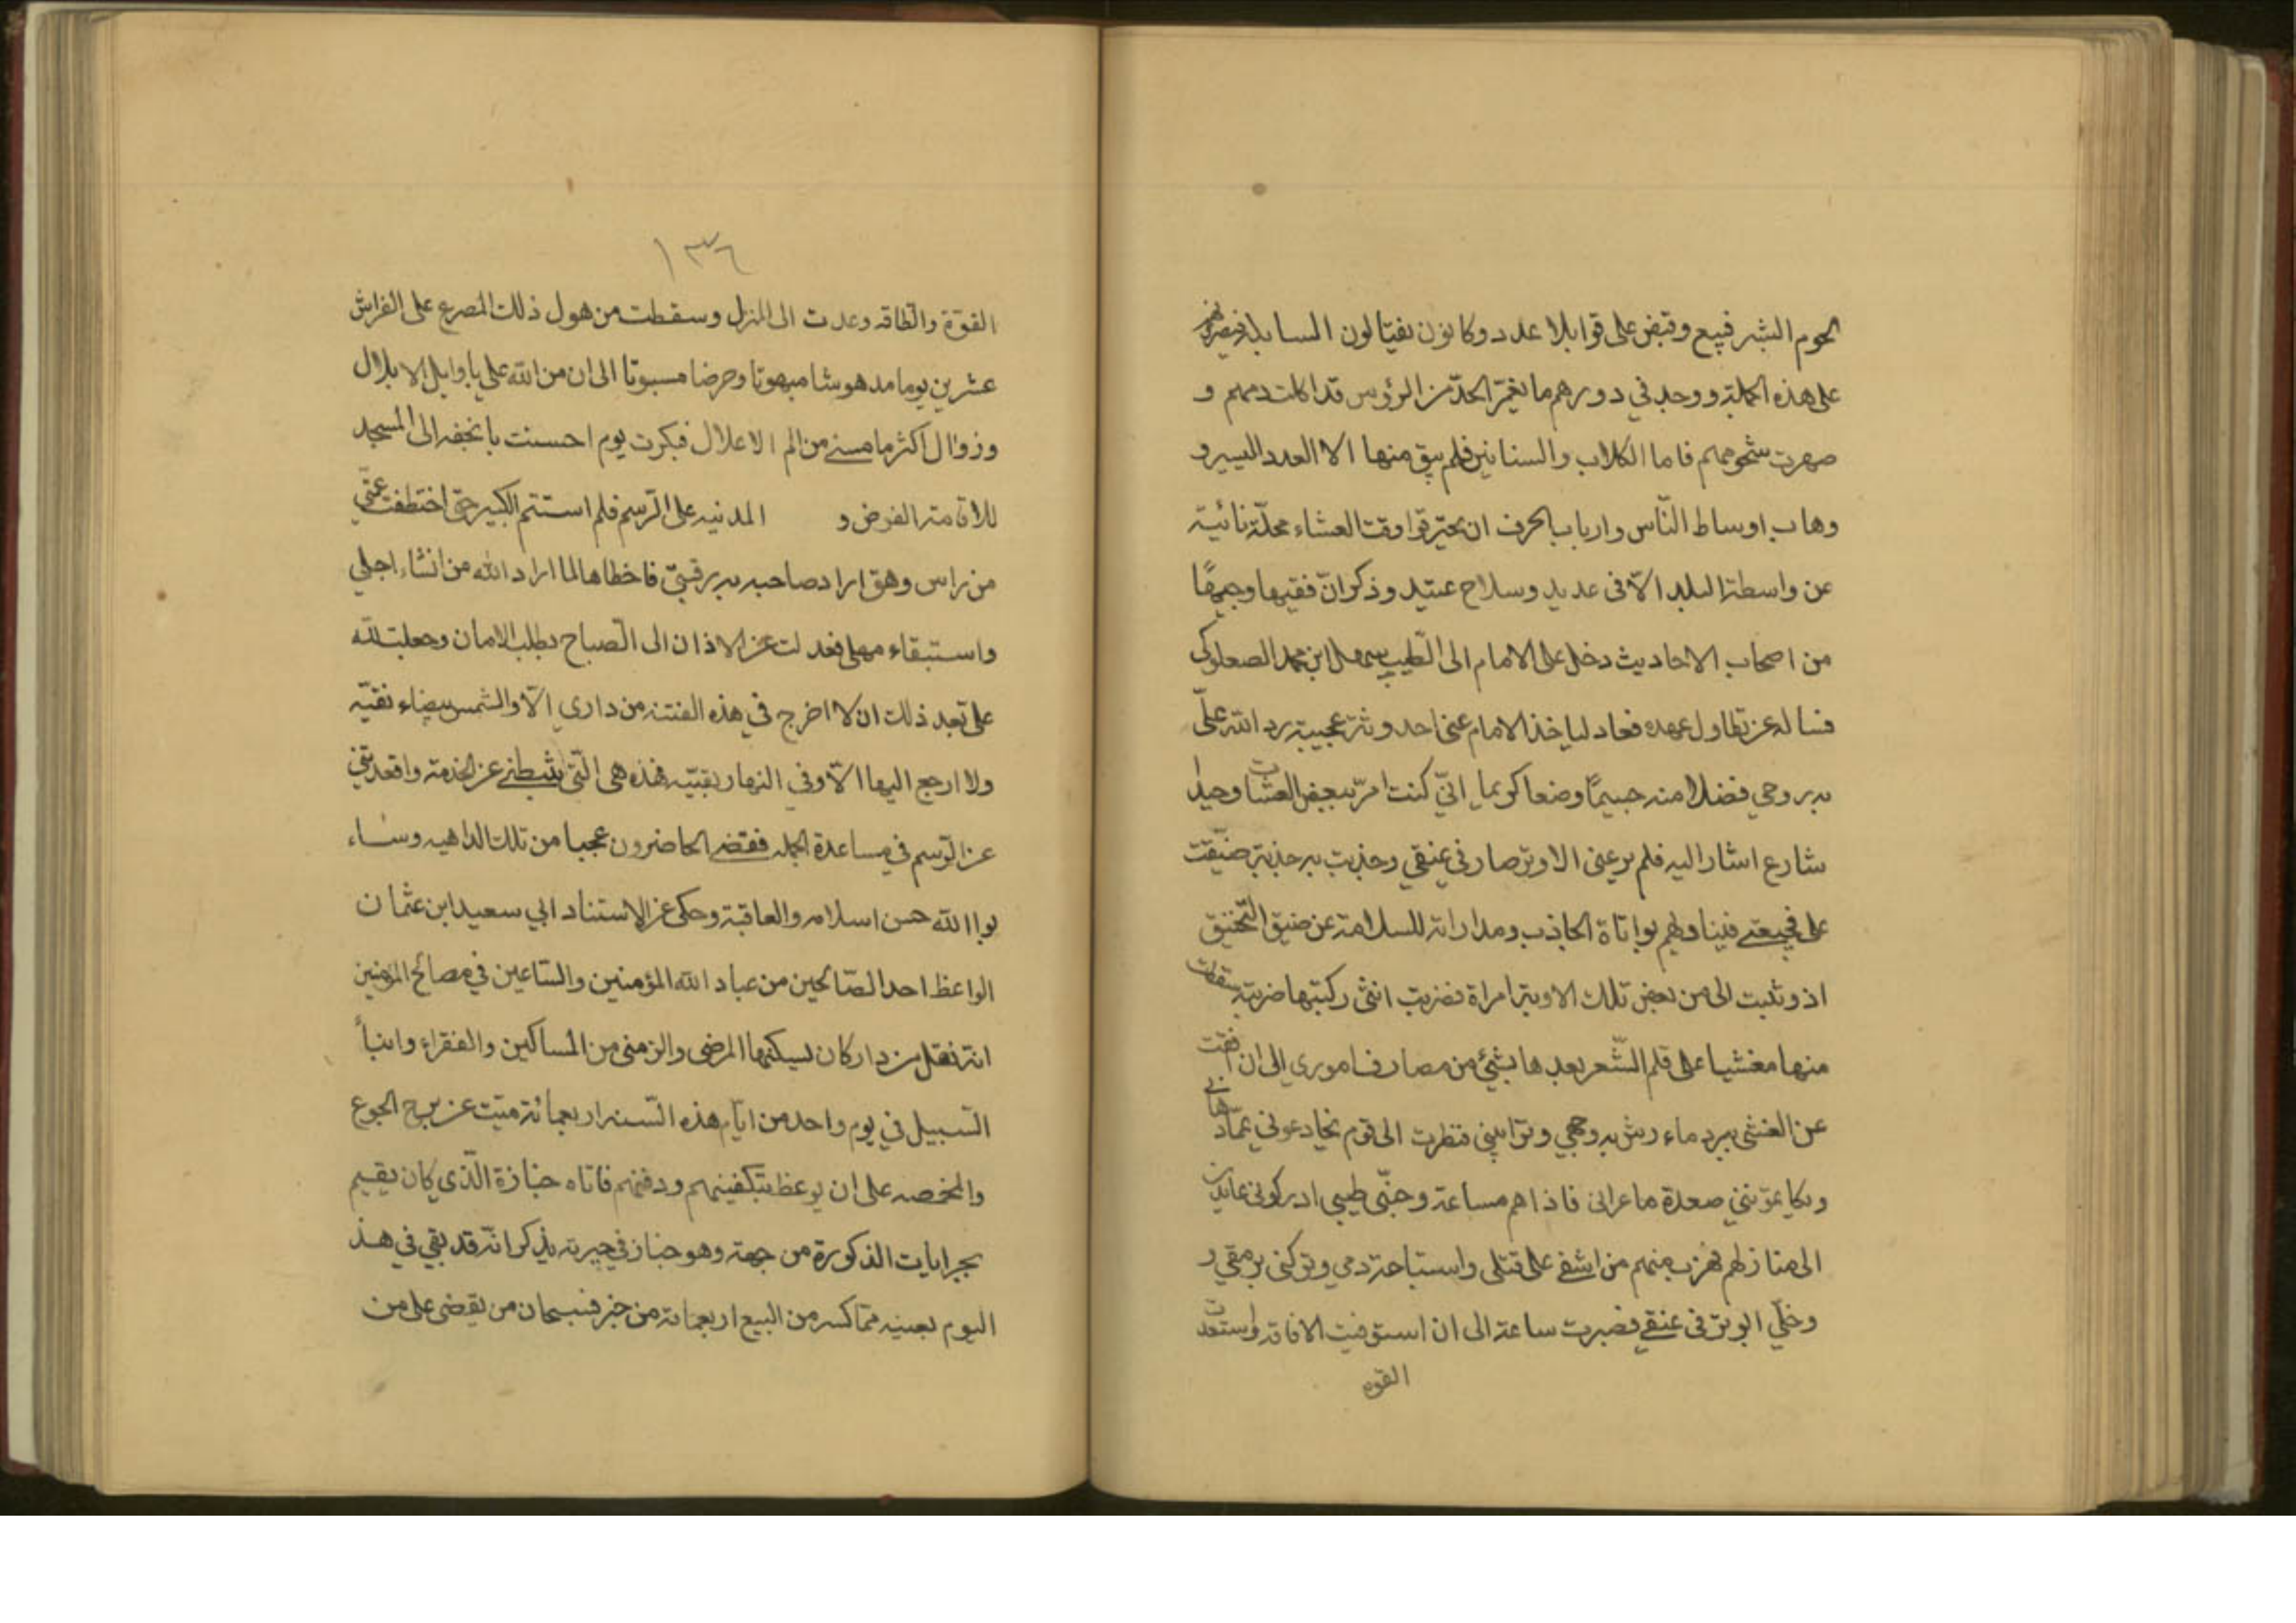 لحوم البشر فبيع وقبض على قوا بلا عدد وكانون نفيتالون السابلة فيصرنهم
على هذه الجملة ووجد في دورهم ما يغمر الحد من الرؤس قد اكلت دمهم و
صهرت شحومهم فاما الكلاب والسنانير فلم يبق منها الا العدد اليسير و
وهاب اوساط النّاس وارباب الحرف ان يخترقوا وقت العشاء محلّة نائية
عن واسطة البلد الّا فى عديد وسلاح عتيد وذكر انّ فقيها وجيهًا
من اصحاب الاحاديث دخل على الامام الى الطّيب سهل ابن محمد الصعلوكى
فساله عن تطاول عهده فعاد لياخذ الامام عنى احدوثة عجيبة رد الله علىّ
به روحي فضلا منه جسيمًا وضعا كويما انيّ كنت امرّ ببعض العشيات وحيدا
شارع اشار اليه فلم يرعنى الا وتر صار فى عنقي وجذبت به جذبة ضيّقت
على فجيعتى فينا ولهم بواتاة الجاذب ومداراته للسلامة عن ضيق التّخنيق
اذ وثبت الى من بعض تلك الاوبة امراة فضربت انثى ركبتها ضربة سقطت
منها مغشيا على فلم الشّعر بعدها بشئ من مصارف امورى الى ان افقت
عن الغشى ببرد ماء رش به وجهي وترايبي فنظرت الى قوم نخادعونى عمّا دهانى
وبكا يمؤنني صعدة ما عرانى فاذا هم مساعة وجنّى طيبى ادركونى عايدين
الى منازلهم فهرب منهم من اشفى على قتلى واستباحة دمي وتركنى برمقي و
وخلّي الوتر فى عنقي فصبرت ساعة الى ان استوفيت الافاقة واستعدت
القوه
١٣٦
القوّة والطاقه وعدت الى المنزل وسقطت من هول ذلك المصرع على الفراش
عشرين يوما مدهوشا مبهوتا وحرضا مسبوتا الى ان من الله على باوايل الابلال
وزوال اكثر ما مسنى من الم الاعلال فبكرت يوم احسنت بانخفه الى المسجد
للاقامة الفرض و المدنيه على الرّسم فلم استتم الكبير حتى اختطفت عنّي
من راس وهق اراد صاحبه به رقبتىّ فاخطاها لما اراد الله من انشاء اجلي
واستبقاء مهلى فعدلت عن الاذان الى الصباح بطلب الامان وجعلت لله
على بعد ذلك ان لا اخرج في هذه الفتنه من داري الّا والشمس بيضاء نقيّه
ولا ارجع اليها الّا وفي النهار بقيّه فهذه هى التّى ثبطنى عن الخدمة واقعدتنى
عن الرّسم في مساعدة الجملة فقضى الحاضرون عجبا من تلك الداهيه وسناء
لوا الله حسن اسلامه والعاقبة وحكى عن الاستناد ابي سعيد ابن عثمان
الواعظ احد الصّالحين من عباد الله المؤمنين والسّاعين في مصالح المؤمنين
انّه نقل من دار كان ليسكنها المرضى والزمنى من المساكين والفقراء وابناء
السّبيل في يوم واحد من ايّام هذه السّنه اربعمائة ميّت عن برح الجوع
والمخمصه على ان يوعظ بتكفينهم ودفنهم فاتاه خبازة الّذي كان يقيم
بجرايات الذكورة من جهته وهو خباز في جيرته يذكر انّه قد بقي في هذ
اليوم بعينه ممّا كسد من البيع اربعمائة من خبز فسبحان من يقضى على من